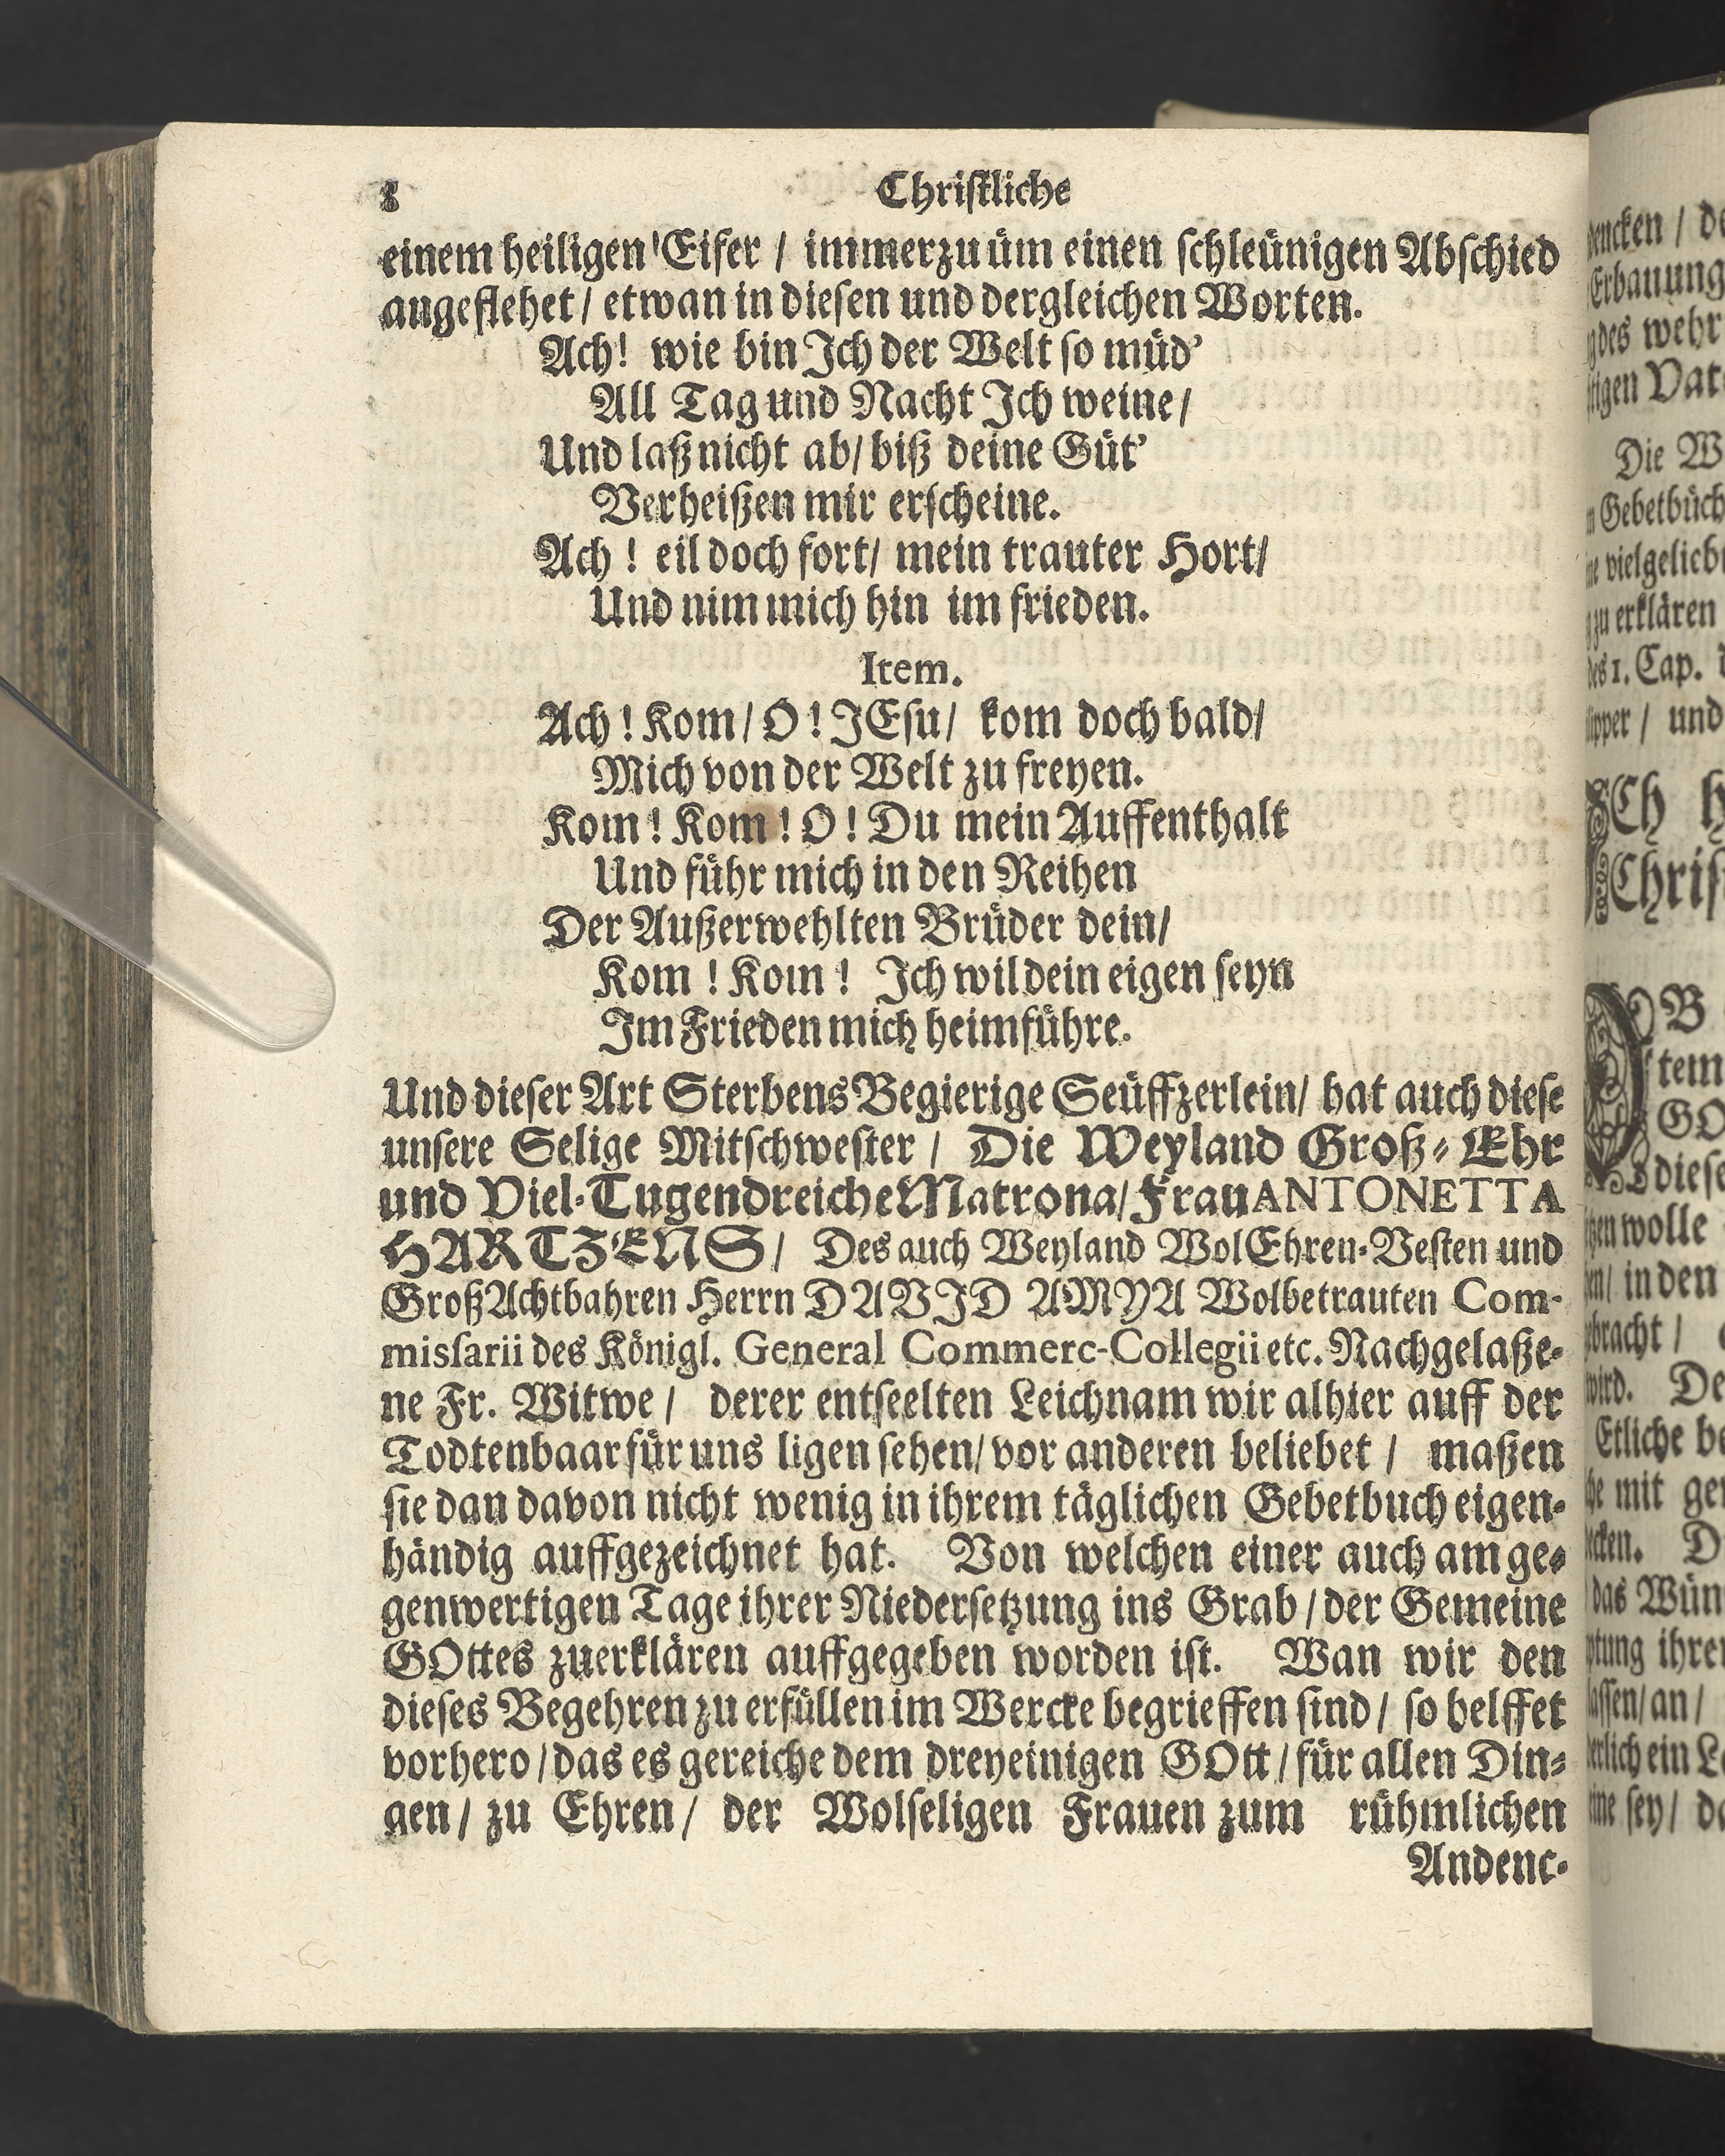 8 Chriſtliche
einem heiligen Eifer / immerzu üm einen ſchleünigen Abſchied
angeflehet / etwan in dieſen und dergleichen Worten.
Ach! wie bin Ich der Welt ſo müd’
All Tag und Nacht Ich weine /
Und laß nicht ab / biß deine Güt’
Verheißen mir erſcheine.
Ach ! eil doch fort / mein trauter Hort /
Und nim mich hin im frieden.
Item.
Ach ! Kom / O ! JEſu / kom doch bald /
Mich von der Welt zu freyen.
Kom ! Kom ! O ! Du mein Auffenthalt
Und führ mich in den Reihen
Der Außerwehlten Brüder dein /
Kom ! Kom ! Ich wil dein eigen ſeyn
Im Frieden mich heimführe.
Und dieſer Art Sterbens Begierige Seüffzerlein / hat auch dieſe
unſere Selige Mitſchweſter / Die Weyland Groß-Ehr
und Viel-Tugendreiche Matrona / Frau ANTONETTA
HARTZENS / Des auch Weyland WolEhren-Veſten und
GroßAchtbahren Herrn DAVID AMYA Wolbetrauten Com-
miſſarii des Königl. General Commerc-Collegii etc. Nachgelaße-
ne Fr. Witwe / derer entſeelten Leichnam wir alhier auff der
Todtenbaar für uns ligen ſehen / vor anderen beliebet / maßen
ſie dan davon nicht wenig in ihrem täglichen Gebetbuch eigen-
händig auffgezeichnet hat. Von welchen einer auch am ge-
genwertigen Tage ihrer Niederſetzung ins Grab / der Gemeine
GOttes zuerklären auffgegeben worden iſt. Wan wir den
dieſes Begehren zu erfüllen im Wercke begrieffen ſind / ſo helffet
vorhero / das es gereiche dem dreyeinigen GOtt / für allen Din-
gen / zu Ehren / der Wolſeligen Frauen zum rühmlichen
Andenc-